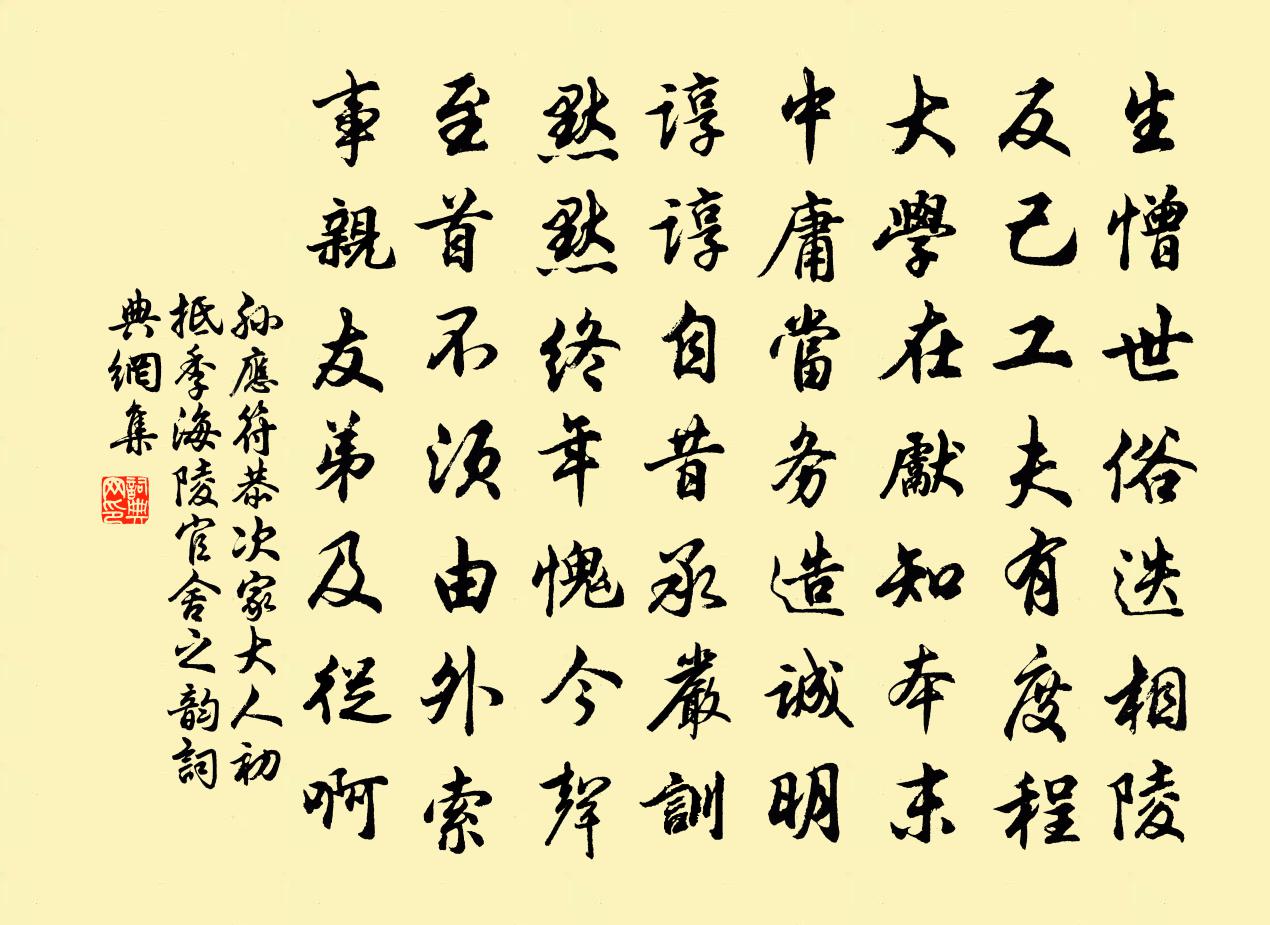 生憎世俗迭相陵
反己工夫有度程
大學在獻知本末
中庸當务造誠明
谆谆自昔承嚴訓
黙黙終年愧今聲
至首不须由外索
事親友弟及從啊
孙應符恭次家大人初
抵季海陵官舍之韵詞
典網集
詞典网印